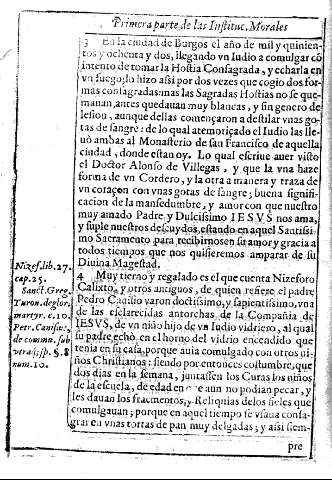 Primera parte de las Instituc. Morales
3 En la ciudad de Burgos el año de mil y quinien-
tos y ochenta y dos, llegando vn Iudio a comulgar cō
intento de tomar la Hostia Consagrada, y echarla en
vn fuego; lo hizo assi por dos vezes que cogio dos for-
mas consagradas: mas las Sagradas Hostias no se que-
mauan, antes quedauan muy blancas, y sin genero de
lesion, aunque dellas començaron a destilar vnas go-
tas de sangre: de lo qual atemoriçado el Iudio las lle-
uò ambas al Monasterio de san Francisco de aquella
ciudad, donde estan oy. Lo qual escriue auer visto
el Doctor Alonso de Villegas, y que la vna haze
forma de vn Cordero, y la otra a manera y traza de
vn coraçon con vnas gotas de sangre; buena signifi-
cacion de la mansedumbre, y amor con que nuestro
muy amado Padre y Dulcissimo IESVS nos ama,
y suple nuestros descuydos, estando en aquel Santissi-
simo Sacramento para recibirnos en su amor y gracia a
todos tiempos que nos quisieremos amparar de su
Diuina Magestad.
4 Muy tierno y regalado es el que cuenta Nizeforo
Calixto, y otros antiguos, de quien refiere el padre
Pedro Canisio varon doctissimo, y sapientissimo, vna
de las esclarecidas antorchas de la Compañia de
IESVS, de vn niño hijo de vn Iudio vidriero, al qual
su padre echò en el horno del vidrio encendido que
tenia en su casa, porque auia comulgado con otros ni-
ños Christianos: siendo por entonces costumbre, que
dos dias en la semana, juntassen los Curas los niños
de la escuela, de edad en que aun no podian pecar, y
les dauan los fracmentos, y Reliquias de los fieles que
comulgauan; porque en aquel tiempo se vsaua consa-
grar en vnas tortas de pan muy delgadas; y assi siem-
pre
Nizef. lib. 27.
cap. 25.
Sanct. Greg.
Turon. de glor.
martyr. c. 10.
Petr. Canisi.
de commu. sub
§. 8
num. 10.